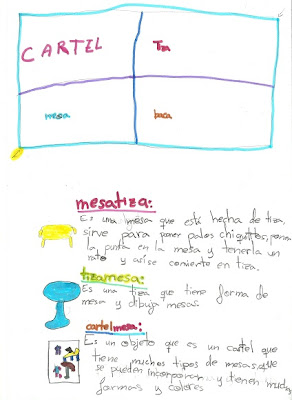 CARTEL
Tiza
mesa
baca
mesatiza:
Es una mesa que está hecha de tiza,
sirve para poner palos chiquitos, pones
la punta en la mesa y tenerla un
rato y asi se convierte en tiza.
tizamesa:
Es una tiza que tiene forma de
mesa y dibuja mesas.
cartelmesa:
Es un objeto que es un cartel que
tiene muchos tipos de mesas, que
se pueden incorporar y tenen muchas
formas y colores